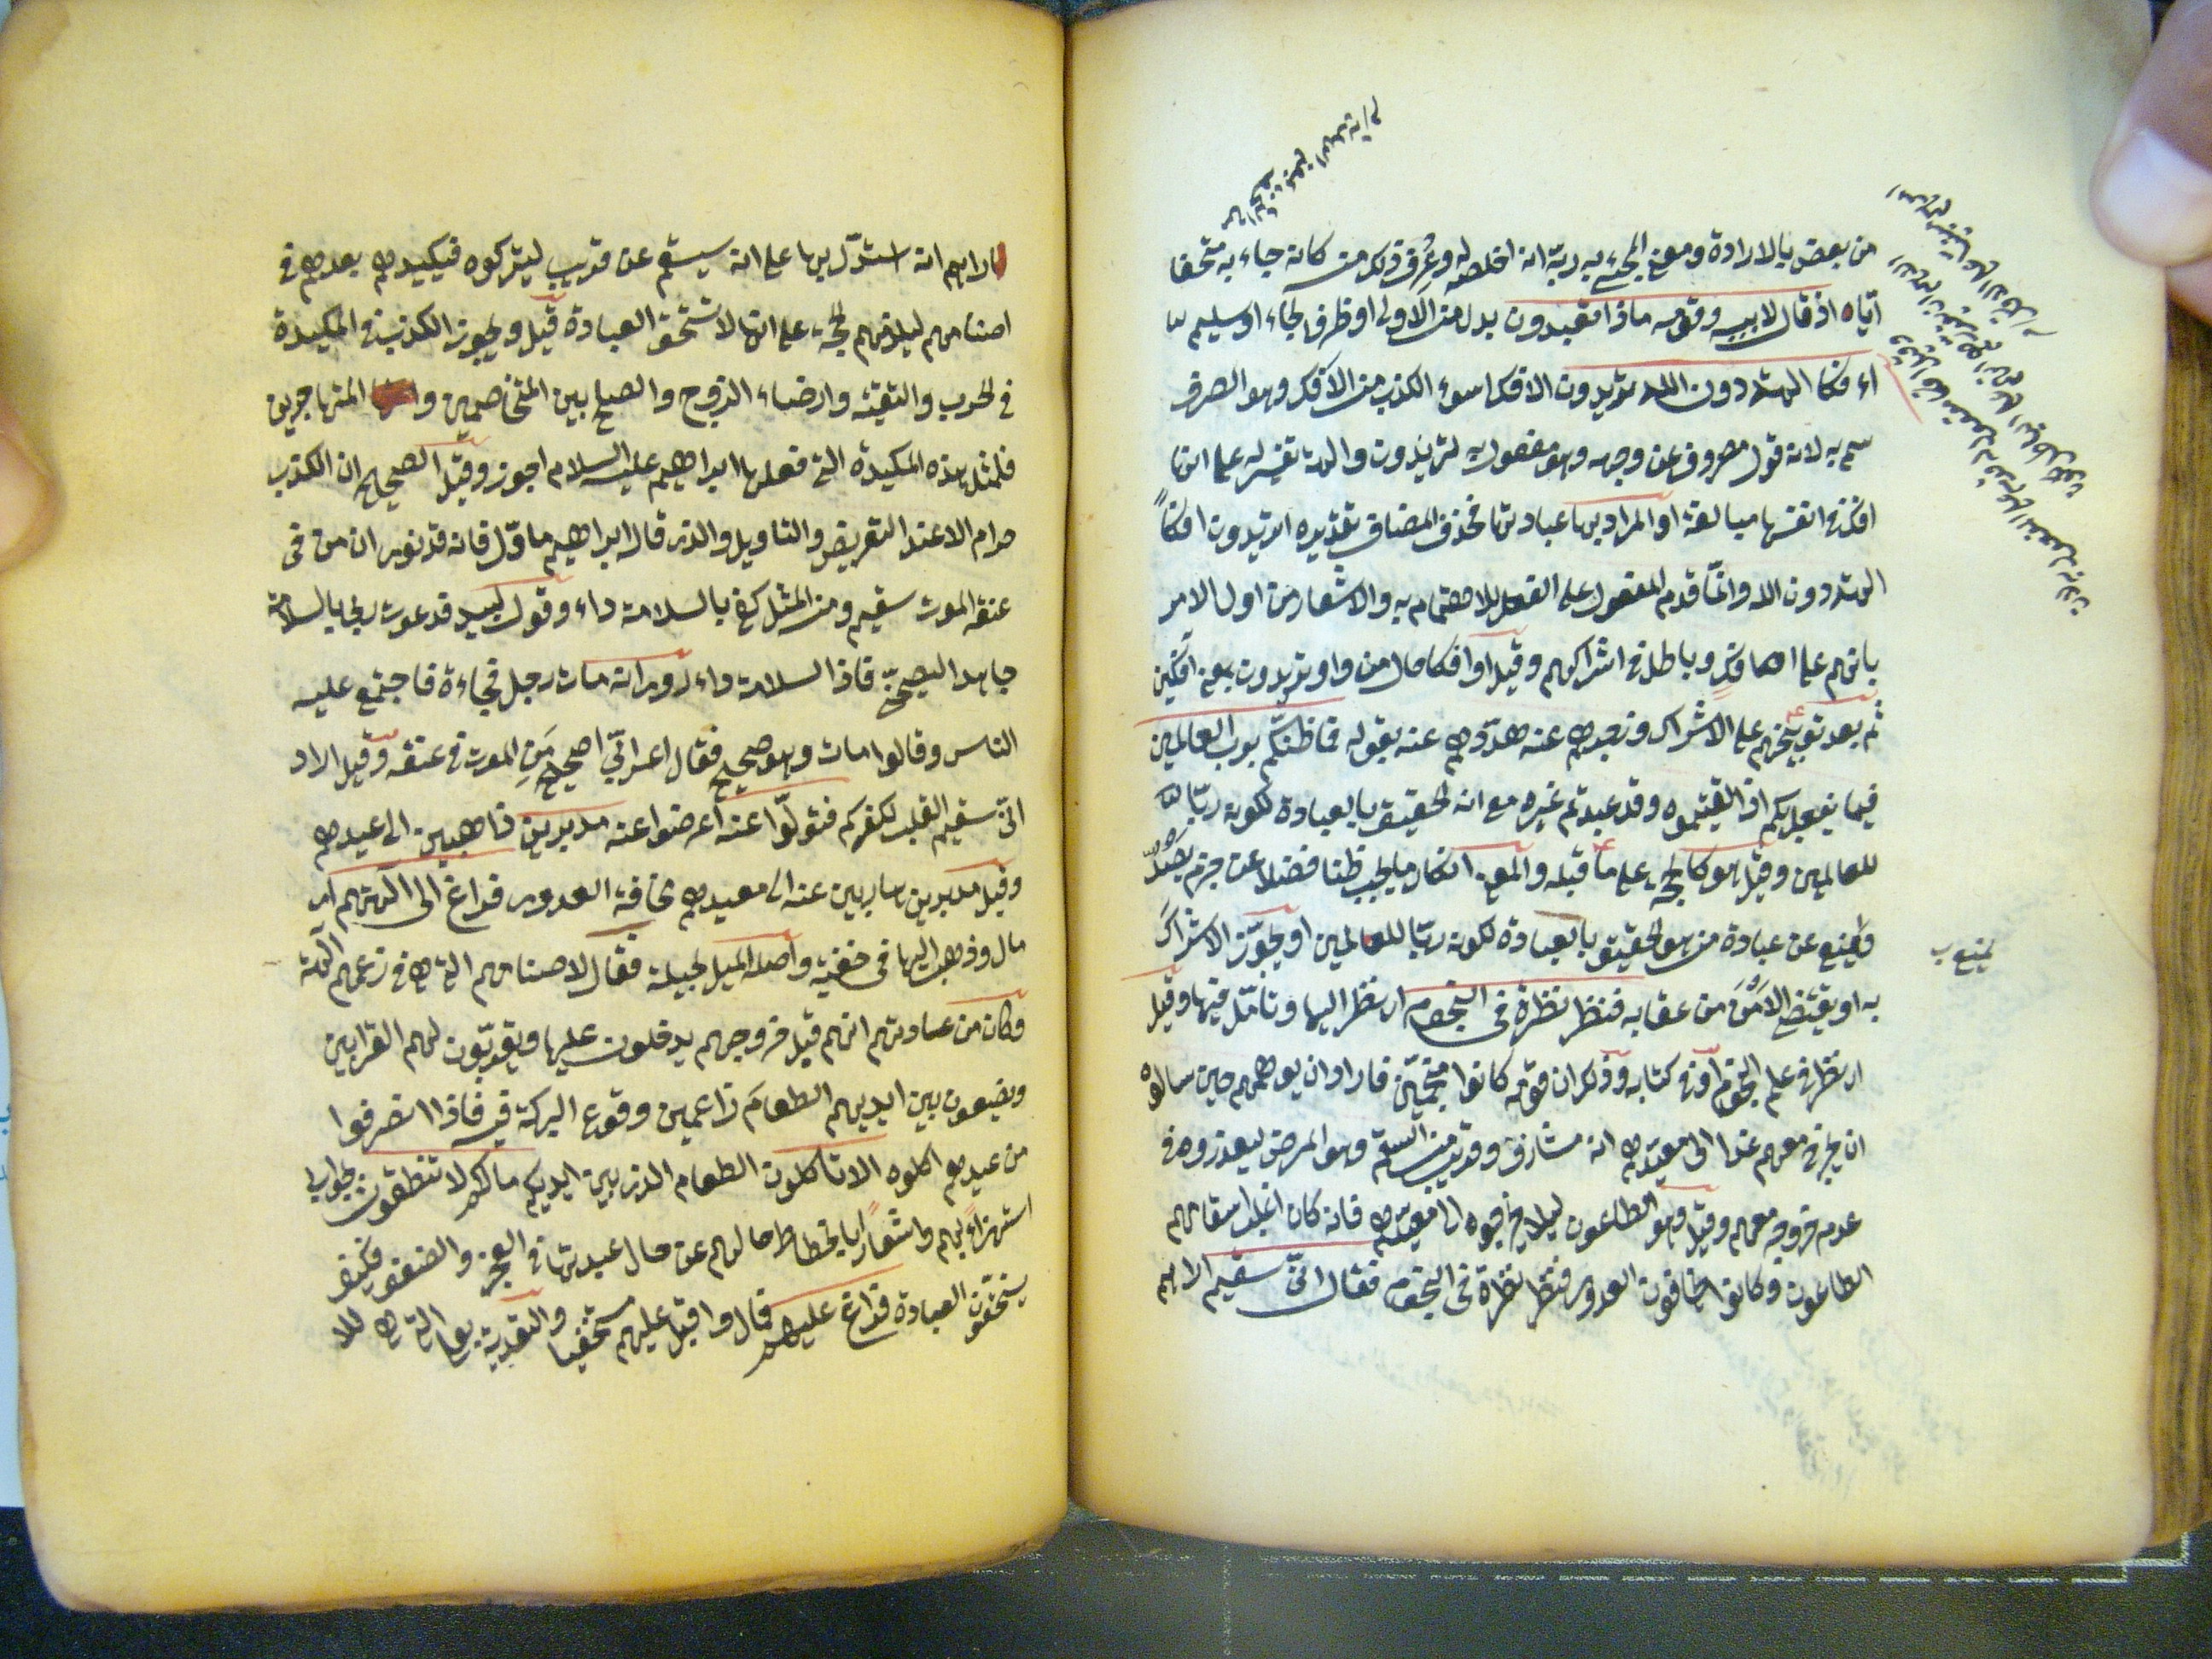 من بعض بالارادة ومعنى المجئ به ربه انه اخلصه له وعرف ذلك منه كانه جاء به متحفا
اياه اذ قال لابيه وقومه ماذا تعبدون بدل من الاولى او ظرف لجاء او سليم
اءفكا الهة دون الله تريدون الافك اسوء الكذب من الافك وهو الصرف
سمى به لانه قول مصروف عن وجهه وهو مفعول به لتريدون والهة تفسير له على انها
افك فى انفسها مبالغة او المراد بها عبادتها بحذف المضاف تقديره اتريدون افكا
الهة دون الله وانما قدم المفعول على الفعل للاهتمام به والاشعار من اول الامر
بانهم على افك وباطل فى اشراكهم وقيل اءفكا حال من واو تريدون بمعنى آفكين
ثم بعد توبيخهم على الاشراك وتبعيدهم عنه هددهم عنه بقوله فما ظنكم برب العالمين
فيما يفعل بكم اذا لقيتموه وقد عبدتم غيره مع انه الحقيق بالعبادة لكونه ربا
للعالمين وقيل هو كالحجة على ما قبله والمعنى انكار ما يوجب ظنا فضلا عن جزم يصد
ويمنع عن عبادة من هو الحقيق بالعبادة لكونه ربا للعالمين او يجوز الاشراك
يمنع عن
به او يقتضى الامن من عقابه فنظر نظرة فى النجوم اى نظر اليها وتأمل فيها وقيل
اى نظر فى علم النجوم او فى كتابه وذكر ان قومه كانوا منجمين فاراد ان يوهمهم حين سالوه
ان يخرج معهم غدا الى معيدهم انه مشارف وقريب من السقم وهو المرض ليعذروه فى
عدم خروجه معهم وقيل وهو الطاعون ليلا يخرجوه الى معيدهم فانه كان اغلب اسقامهم
الطاعون وكانوا يخافون العدوى فنظر نظرة فى النجوم فقال انى سقيم اراهم
اراهم انه استدل بها على انه سيسقم عن قريب ليتركوه فيكيدهم بعدهم فى
اصنامهم ليلزمهم الحجة على انها لا تستحق العبادة قيل ويجوز الكذب فى المكيدة
فى الحرب والتقية وارضاء الزوج والصلح بين المتخاصمين والمتهاجرين
فلمثل هذه المكيدة التى فعلها ابراهيم عليه السلام اجوز وقيل الصحيح ان الكذب
حرام الا عند التعريض والتاويل والذى قال ابراهيم ماول فانه قد نوى ان من فى
عنقه الموت سقيم ومن المثل كفى بالسلامة داء وقول لبيد قد دعوت ربى بالسلامة
جاهدا ليصحنى فاذا السلامة داء روى انه مات رجل فجاءة فاجتمع عليه
الناس وقالوا مات وهو صحيح فقال اعرابى اصحيح من الموت فى عنقه وقيل اراد
انى سقيم القلب لكفركم فتولوا عنه اعرضوا عنه مدبرين ذاهبين الى عيدهم
وقيل مدبرين هاربين عنه الى معيدهم مخافة العدوى فراغ الى الهتهم اى
مال وذهب اليها فى خفية واصله الميل بحيلة فقال لاصنامهم التى هى فى زعمهم الهة
وكان من عادتهم انهم قبل خروجهم يدخلون عليها ويقربون لهم القرابين
ويضعون بين ايديهم الطعام زاعمين وقوع البركة فيه فاذا انصرفوا
من عيدهم اكلوه الا تأكلون الطعام الذى بين ايديكم ما لكم لا تنطقون بجوابى
استهزاء بهم واشعارا بانحطاط حالهم عن حال عبدتها فى العجز والضعف فكيف
يستحقون العبادة فراغ عليهم فمال واقبل عليهم مستخفيا والتعدية بعلى التى هى للا